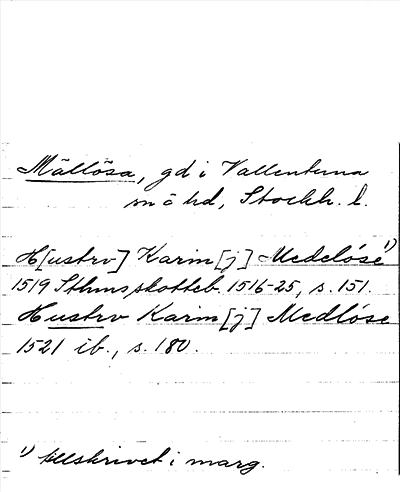 Mällösa, gd i Vallentuna
sn o hd, Stockh. l.
H[ustrv] Karin [j] Medelóse ¹)
1519 Sthms skotteb. 1516-25, s. 151.
Hustrv Karin [j] Medlóse
1521 ib., s. 180.
¹) tillskrivet i marg.